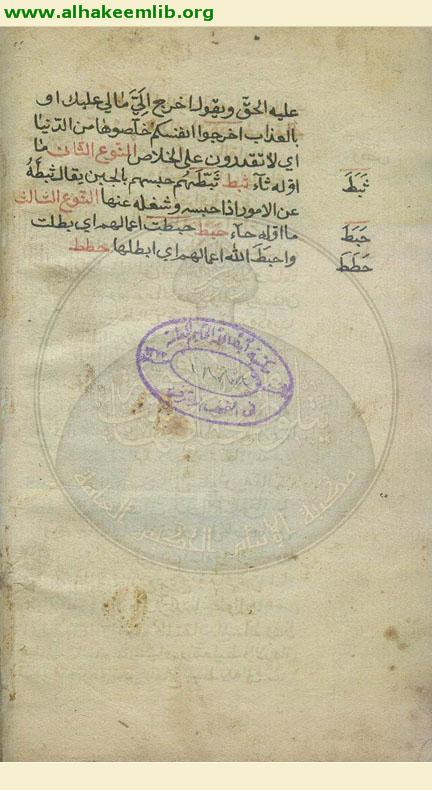 www.alhakeemlib.org
عليه الحق ويقول اخرج اليَّ مالي عليك او
بالعذاب اخرجوا انفسكم خلصوها من الدنيا
اي لا تقدرون على الخلاص النوع الثاني ما
اوله ثآء ثبط ثبّطهم حبسهم بالجبن يقال ثبّطهُ
ثَبَطَ
عن الامور اذا حبسه وشغله عنها النوع الثالث
ما اوله حآء حبط حبطت اعمالهم اي بطلت
حَبَطَ
واحبَطَ الله اعمالهم اي ابطلها حطط
حَطَط
مكتبة الإمام الحكيم العامة